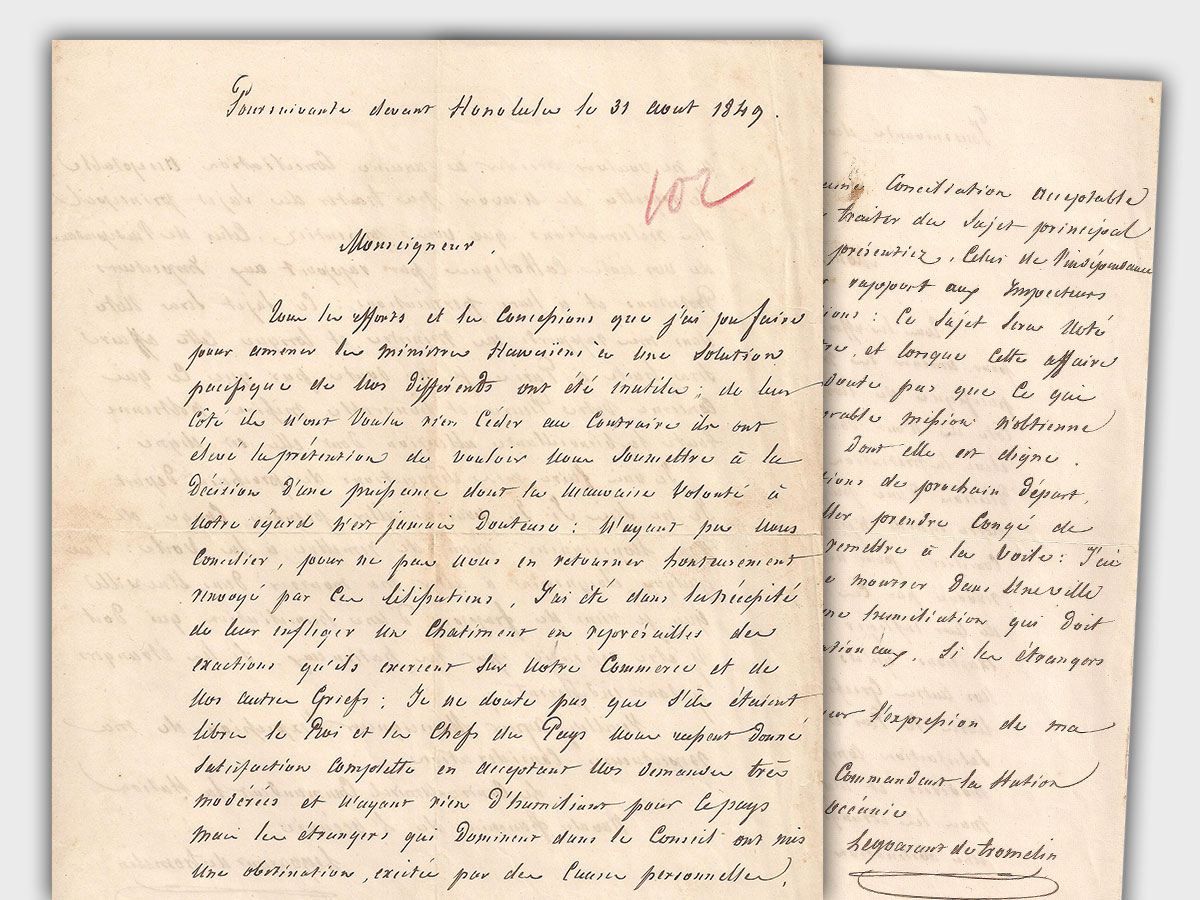 Poursuivante devant Honolulu le 31 aout 1849.
102
Monseigneur,
Tous les efforts et les Concessions que j'ai pu faire
pour amener les ministres Hawaiiens à une solution
pacifique de nos différents ont été inutiles ; de leur
côté ils n'ont Voulu rien Céder au Contraire ils ont
élevé la prétention de vouloir nous soumettre à la
Décision d'une puissance dont la mauvaise Volonté à
notre egard n'est jamais Douteuse : N'ayant pu nous
Concilier, pour ne pas nous en retourner honteusement
renvoyé par Ces liliputiens, J'ai été dans la nécessité
de leur infliger un Chatiment en représailles des
exactions qu'ils exercent sur notre Commerce et de
nos autres Griefs ; Je ne doute pas que s'ils étaient
libres le Roi et les Chefs du Pays nous eussent donné
satisfaction Complette en acceptant nos demandes très
modérées et n'ayant rien d'humiliant pour le pays
mais les étrangers qui Dominent dans le Conseil ont mis
une obstination, excitée par des Causes personnelles,
une Conciliation acceptable
traiter du sujet principal
présentiez, Celui de l'indépendance
rapport aux Inspecteurs
: Ce sujet sera noté
, et lorsque cette affaire
doute pas que Ce qui
mission n'obtienne
dont elle est digne.
de prochain départ,
prendre Congé de
remettre à la Voile : J'ai
mousser dans une ville
humiliation qui doit
. Si les étrangers
l'expression de ma
Commandant la Station
océanie
Legoarant de tromelin